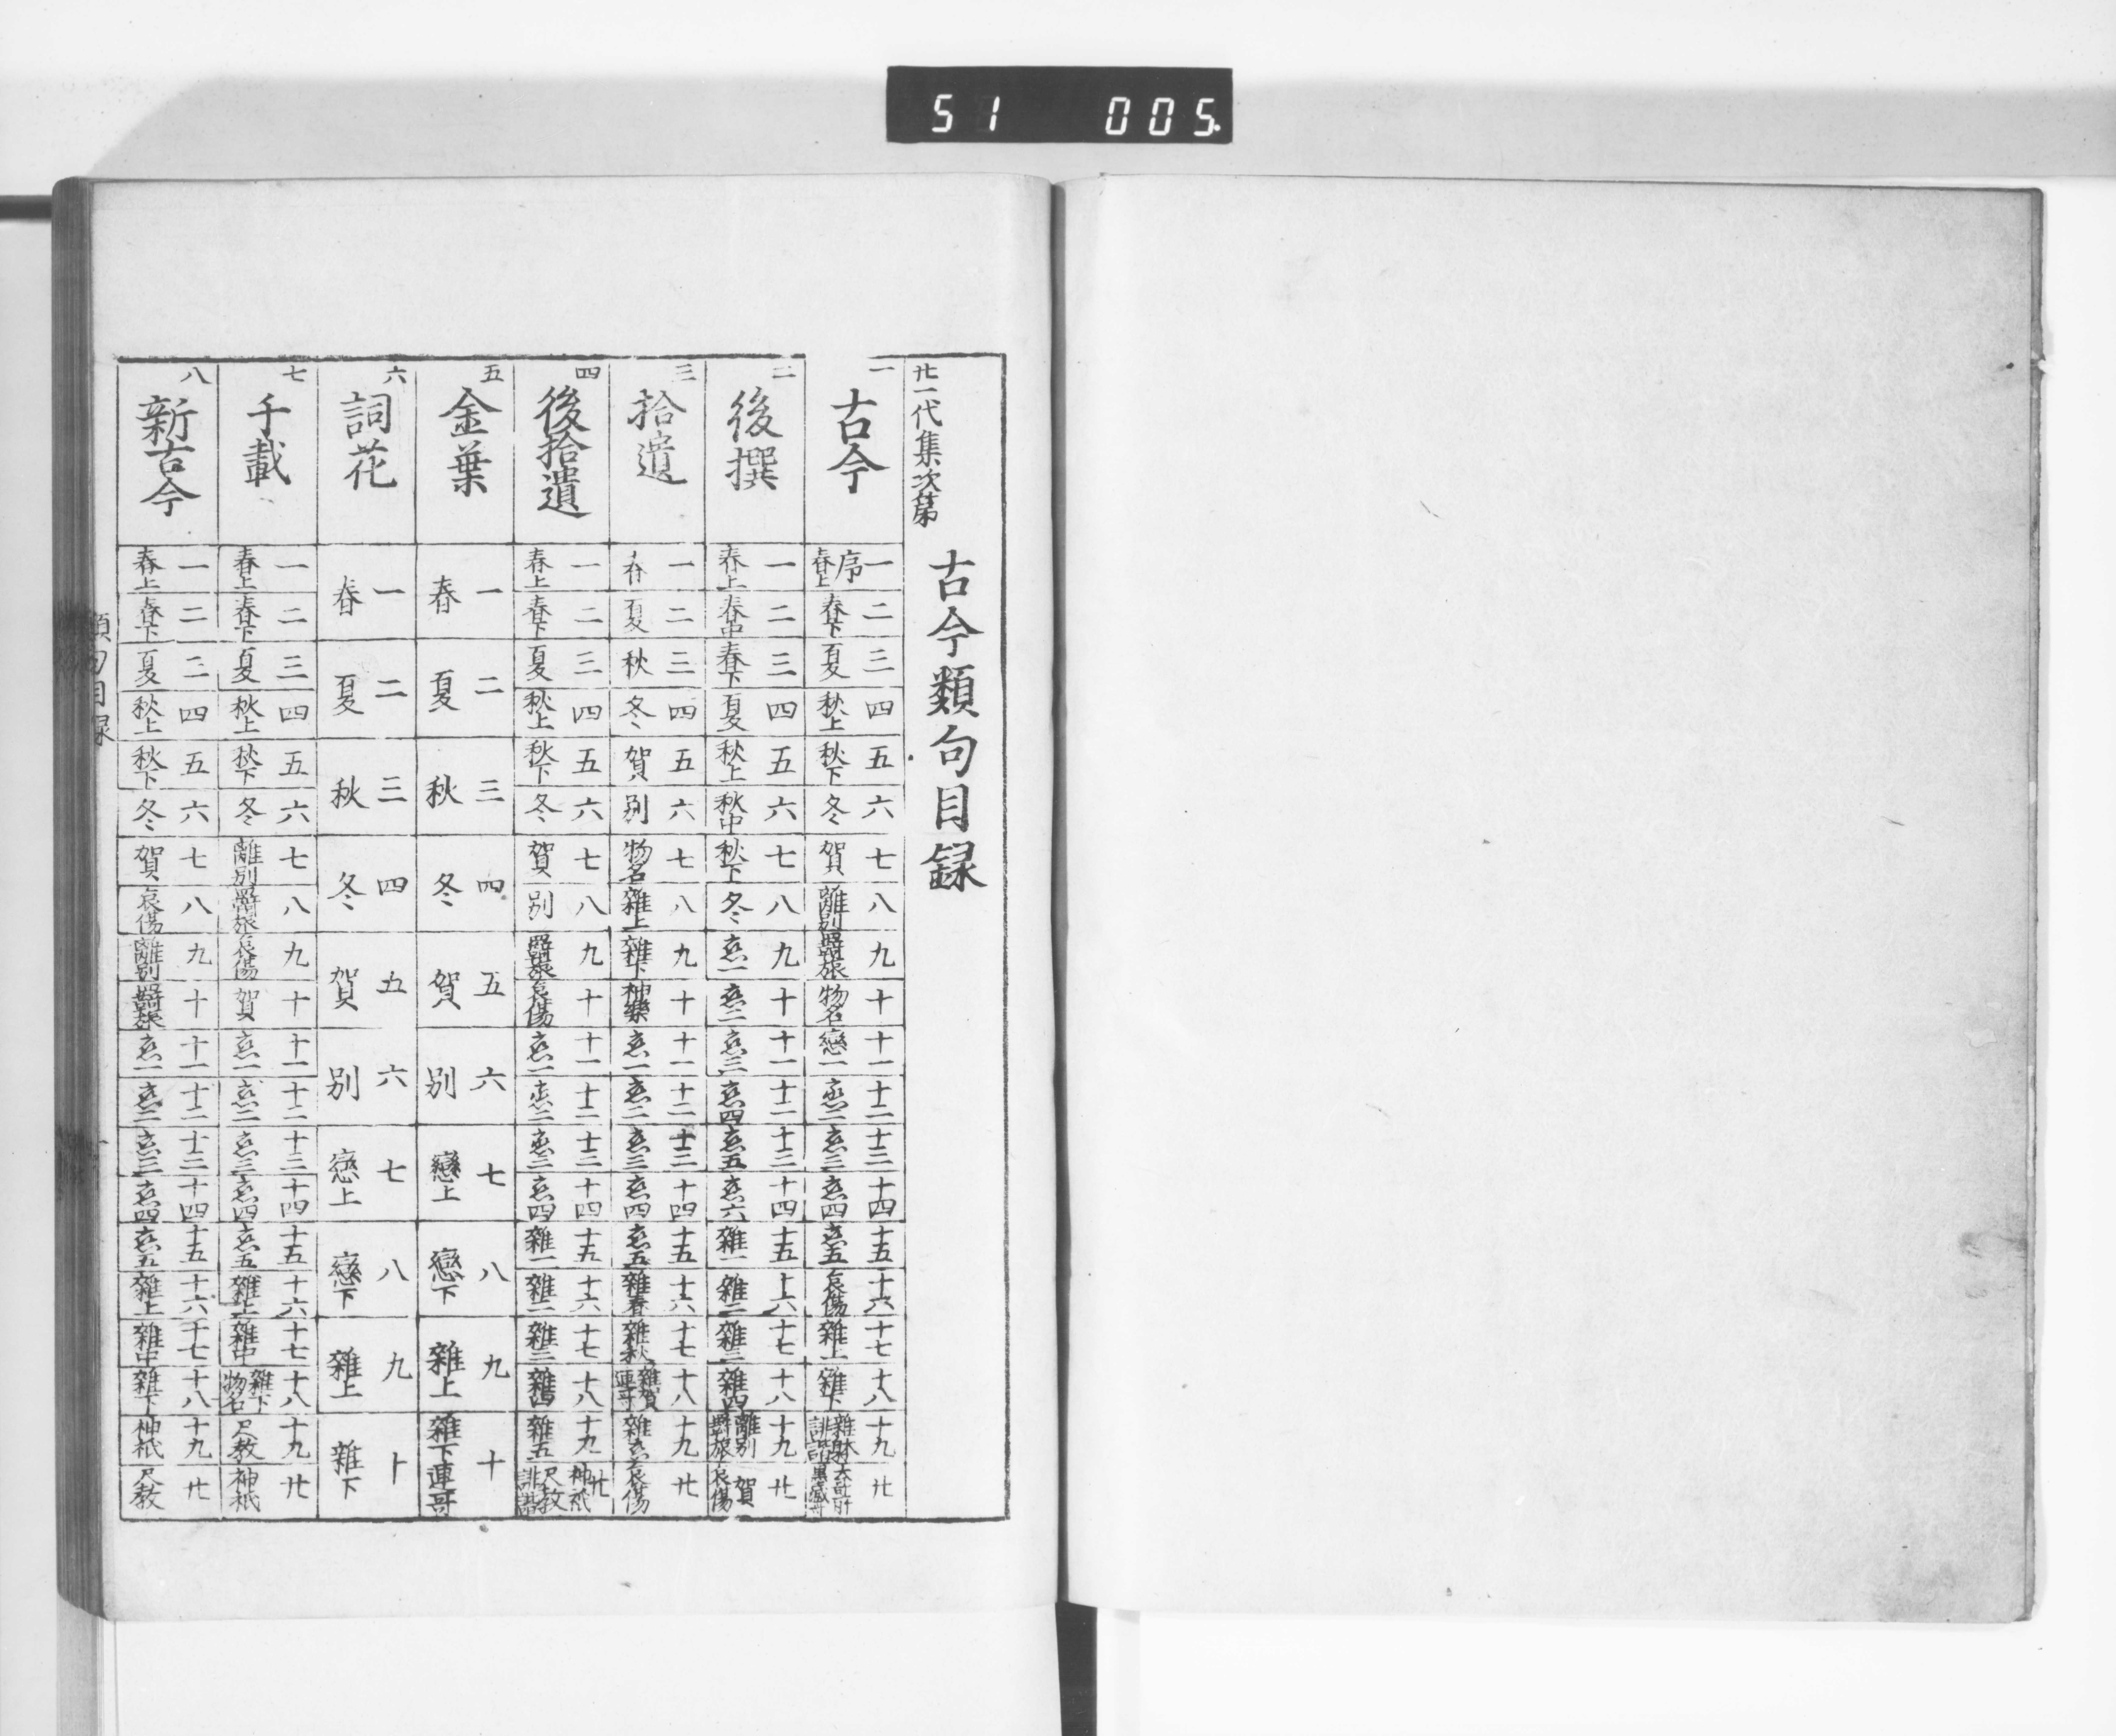 51 005.
古今類句目録
廿一代集次第
一 古今
一 序 春上
二 春下
三 夏
四 秋上
五 秋下
六 冬
七 賀
八 離別
九 羇旅
十 物名
十一 戀一
十二 恋二
十三 恋三
十四 恋四
十五 恋五
十六 哀傷
十七 雜上
十八 雜下
十九 雜躰 誹諧
廿
二 後撰
一 春上
二 春中
三 春下
四 夏
五 秋上
六 秋中
七 秋下
八 冬
九 恋一
十 恋二
十一 恋三
十二 恋四
十三 恋五
十四 恋六
十五 雜一
十六 雜二
十七 雜三
十八 雜四
十九 離別 羇旅
廿 賀 哀傷
三 拾遺
一 春
二 夏
三 秋
四 冬
五 賀
六 別
七 物名
八 雜上
九 雜下
十 神樂
十一 恋一
十二 恋二
十三 恋三
十四 恋四
十五 恋五
十六 雜春
十七 雜秋
十八 雜賀 連哥
十九 雜恋
廿 哀傷
四 後拾遺
一 春上
二 春下
三 夏
四 秋上
五 秋下
六 冬
七 賀
八 別
九 羇旅
十 哀傷
十一 恋一
十二 恋二
十三 恋三
十四 恋四
十五 雜一
十六 雜二
十七 雜三
十八 雜四
十九 雜五
廿 神祇 尺教 誹諧
五 金葉
一 春
二 夏
三 秋
四 冬
五 賀
六 別
七 戀上
八 戀下
九 雜上
十 雜下連哥
六 詞花
一 春
二 夏
三 秋
四 冬
五 賀
六 別
七 戀上
八 戀下
九 雜上
十 雜下
七 千載
一 春上
二 春下
三 夏
四 秋上
五 秋下
六 冬
七 離別
八 羇旅
九 哀傷
十 賀
十一 恋一
十二 恋二
十三 恋三
十四 恋四
十五 恋五
十六 雜上
十七 雜中
十八 雜下 物名
十九 尺教
廿 神祇
八 新古今
一 春上
二 春下
三 夏
四 秋上
五 秋下
六 冬
七 賀
八 哀傷
九 離別
十 羇旅
十一 恋一
十二 恋二
十三 恋三
十四 恋四
十五 恋五
十六 雜上
十七 雜中
十八 雜下
十九 神祇
廿 尺教
類句目録